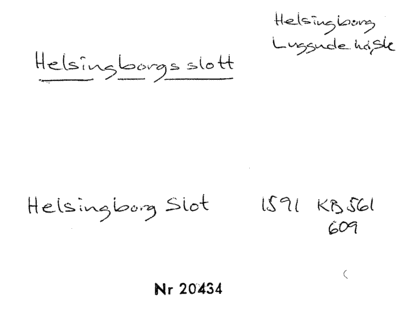 Helsingborg
Luggude hősk
Helsingborgs slott
Helsingborg Slot 1591 KB 561
609
Nr 20434